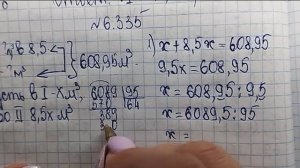 №6.335
в 8,5
м³
608,95м³
1) x + 8,5x = 608,95
9,5x = 608,95
в I - Xм³
6089|95
570 |64
389
x = 608,95 : 9,5
II 8,5xм³
x = 6089,5 : 95
x =